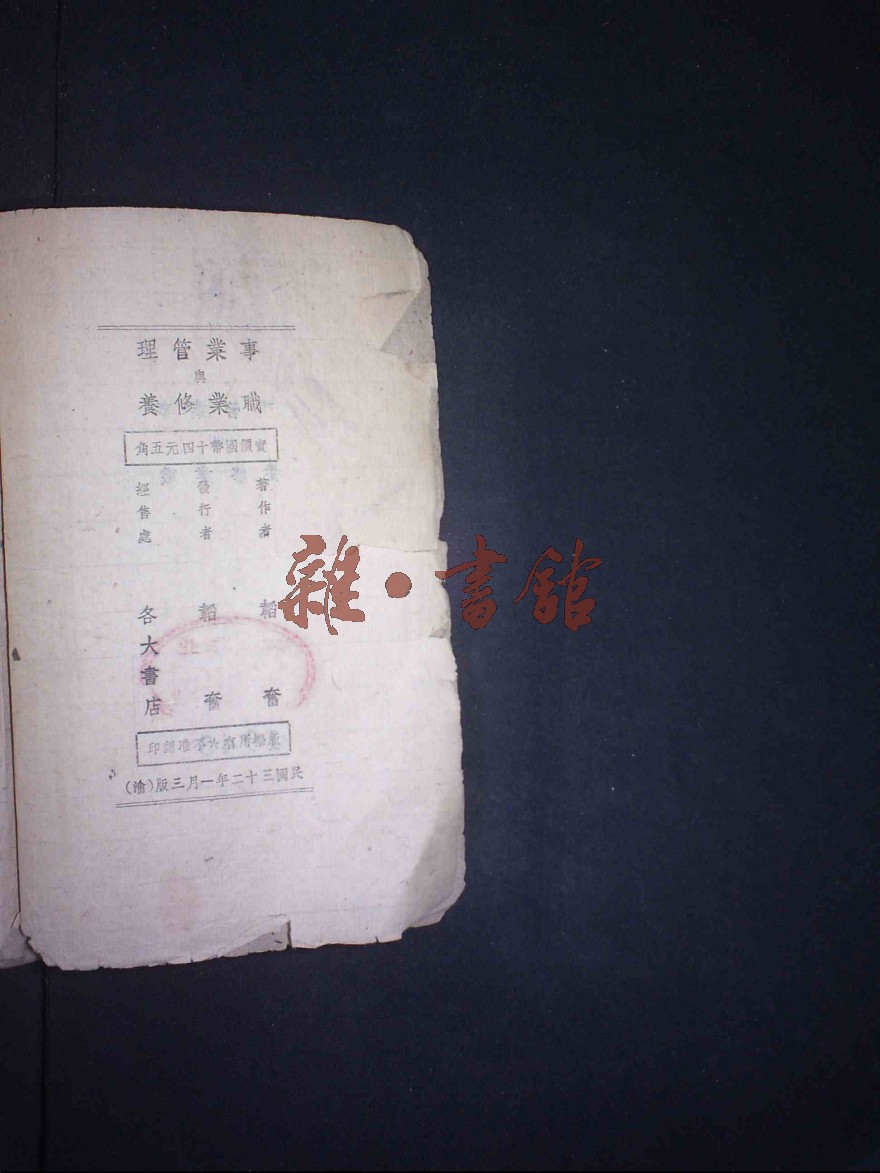 事業管理
與
職業修養
實價國幣十四元五角
著作者 韜奮
發行者 韜奮
經售處 各大書店
版權所有不准翻印
民國三十二年一月三版(渝)
雜·書館